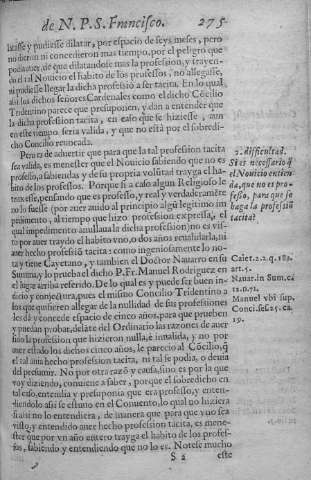 de N. P. S. Francisco. 275
tasse y pudiesse dilatar, por espacio de seys meses, pero
no dieron ni concedieron mas tiempo, por el peligro que
podia auer, de que dilatandose mas la profession, y trayen-
do el tal Nouicio el habito de los professos, no allegasse,
ni pudiesse llegar la dicha professiõ a ser tacita. En lo qual
assi los dichos señores Cardenales como el dicho Cõcilio
Tridentino parece que presuponen, y dan a entender que
la dicha profession tacita, en caso que se hiziesse, aun
en este tiempo seria valida, y que no està por el sobredi-
cho Concilio reuocada.
Pero es de aduertir que para que la tal profession tacita
sea valida, es menester que el Nouicio sabiendo que no es
professo, a sabiendas y de su propria voluntad trayga el ha-
bito de los professos. Porque si a caso algun Religioso le
truxesse, pensando que es professo, y real y verdaderamẽte
no lo fuesse (por auer auido al principio algũ legitimo im
pedimento, al tiempo que hizo profession expressa, el
qual impedimento anullaua la dicha professiõ) no es vis-
to por auer traydo el habito vno, o dos años reualidarla, ni
auer hecho professiõ tacita: como ingeniosamente lo no-
ta y tiene Cayetano, y tambien el Doctor Nauarro en su
Summa, y lo prueba el dicho P. Fr. Manuel Rodriguez en
el lugar arriba referido. De lo qual es y puede ser buen in-
dicio y conjectura, pues el mismo Concilio Tridentino a
los que quisieren allegar de la nullidad de sus professiones
les dà y concede espacio de cinco años, para que prueben
y puedan probar, delãte del Ordinario las razones de auer
sido la profession que hizieron nulla, è inualida, y no por
auer estado los dichos cinco años, le parecio al Cõcilio, q̃
el tal auia hecho profession tacita, ni tal se podia, o deuia
del presumir. No por otra razõ y causa, sino es por la que
voy diziendo, conuiene a saber, porque el sobredicho en
tal caso, entendia y presuponia que era professo, y enten-
diendolo assi se estuuo en el Conuento, lo qual no hiziera
si assi no lo entendiera, de manera que para que vno sea
visto, y entendido auer hecho profession tacita, es menes-
ter que por vn año entero trayga el habito de los profes-
sos, sabiendo y entendiendo que no lo es. Notese mucho
S 2 este
2. difficultad.
Si es necessario q̃
el Nouicio entien
da, que no es pro-
fesso, para que se
haga la professiõ
tacita?
Caiet. 2. 2. q. 189.
art. 5.
Nauar. in Sum. ca
12. n. 51.
Manuel vbi sup.
Conci. sess. 25. ca.
19.